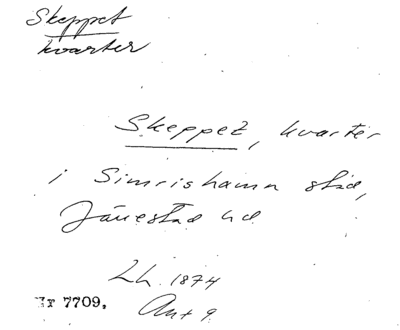 Skeppet
kvarter
Skeppet, kvarter
i Simrishamn stad,
Järrestad hd
Lh. 1874
Er 7709, Ant 9